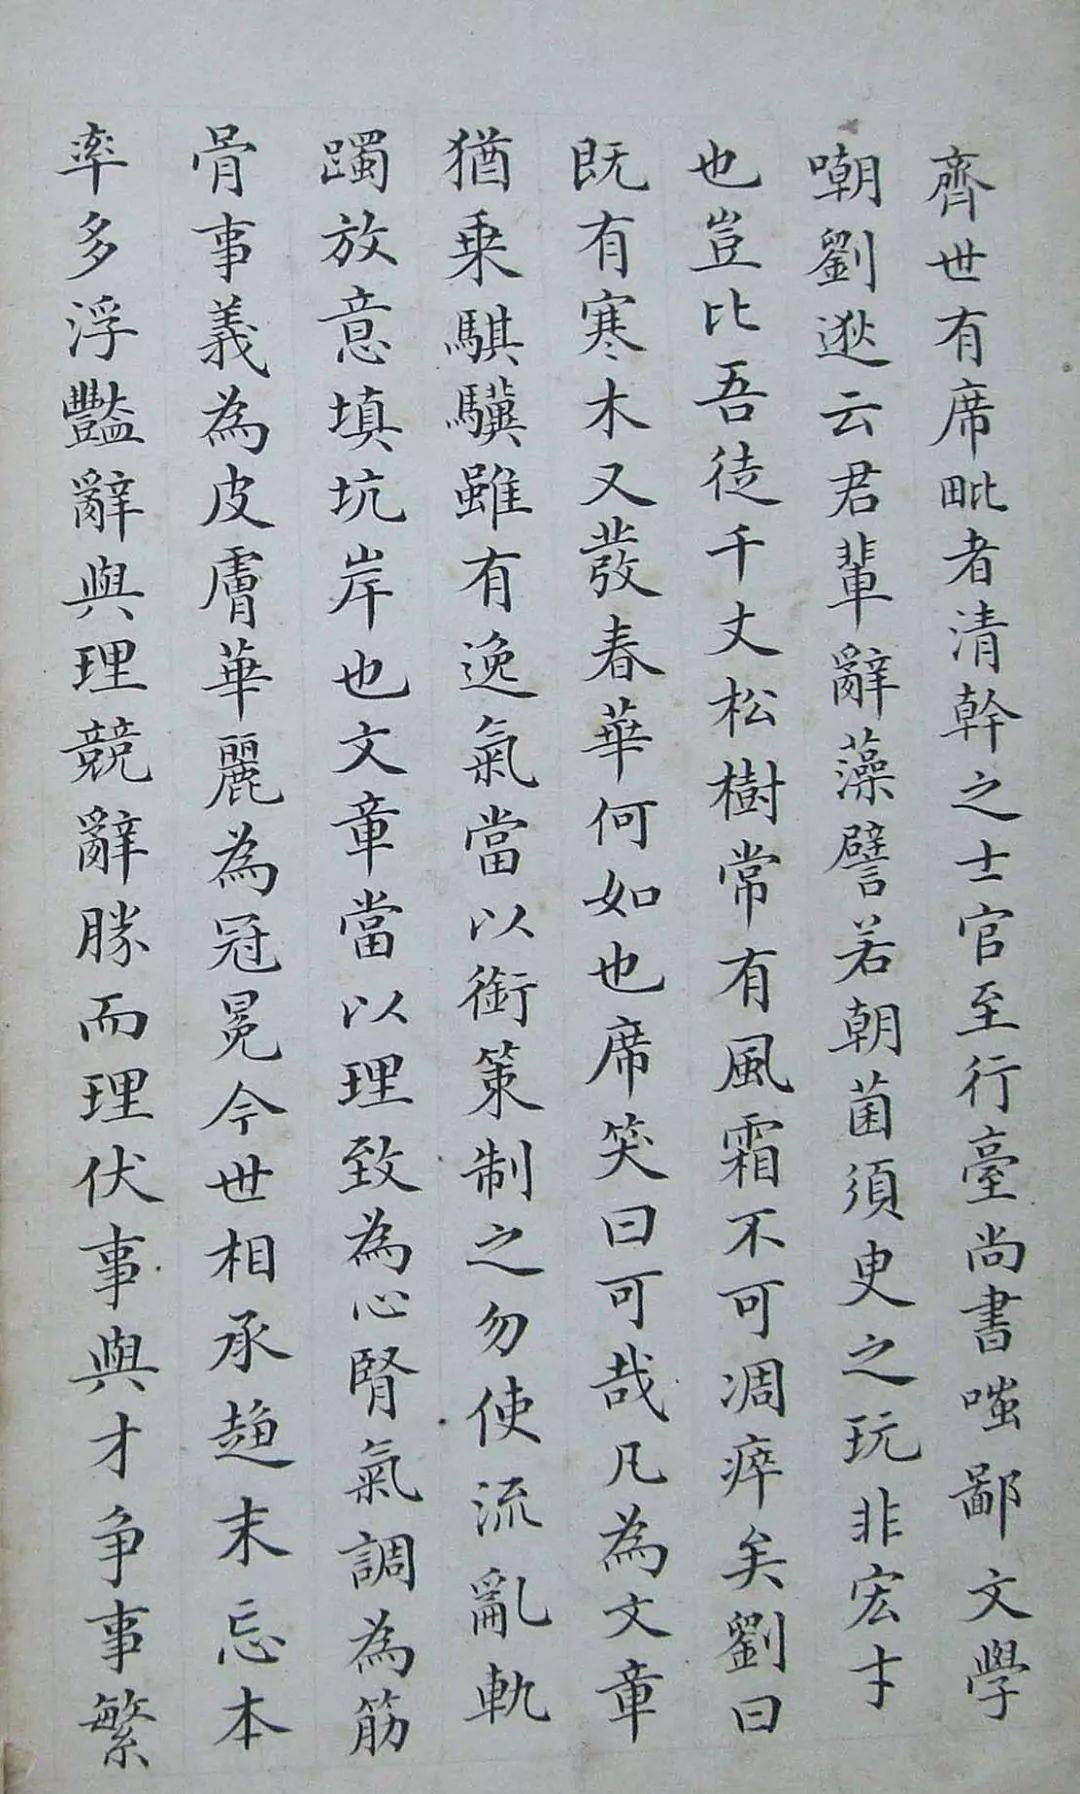 齊世有席毗者清幹之士官至行臺尚書嗤鄙文學
嘲劉逖云君輩辭藻譬若朝菌須臾之玩非宏才
也豈比吾徒千丈松樹常有風霜不可凋瘁矣劉曰
既有寒木又發春華何如也席笑曰可哉凡為文章
猶乗騏驥雖有逸氣當以銜策制之勿使流亂軌
躅放意填坑岸也文章當以理致為心腎氣調為筋
骨事義為皮膚華麗為冠冕今世相承趨末忘本
率多浮豔辭與理競辭勝而理伏事與才争事繁